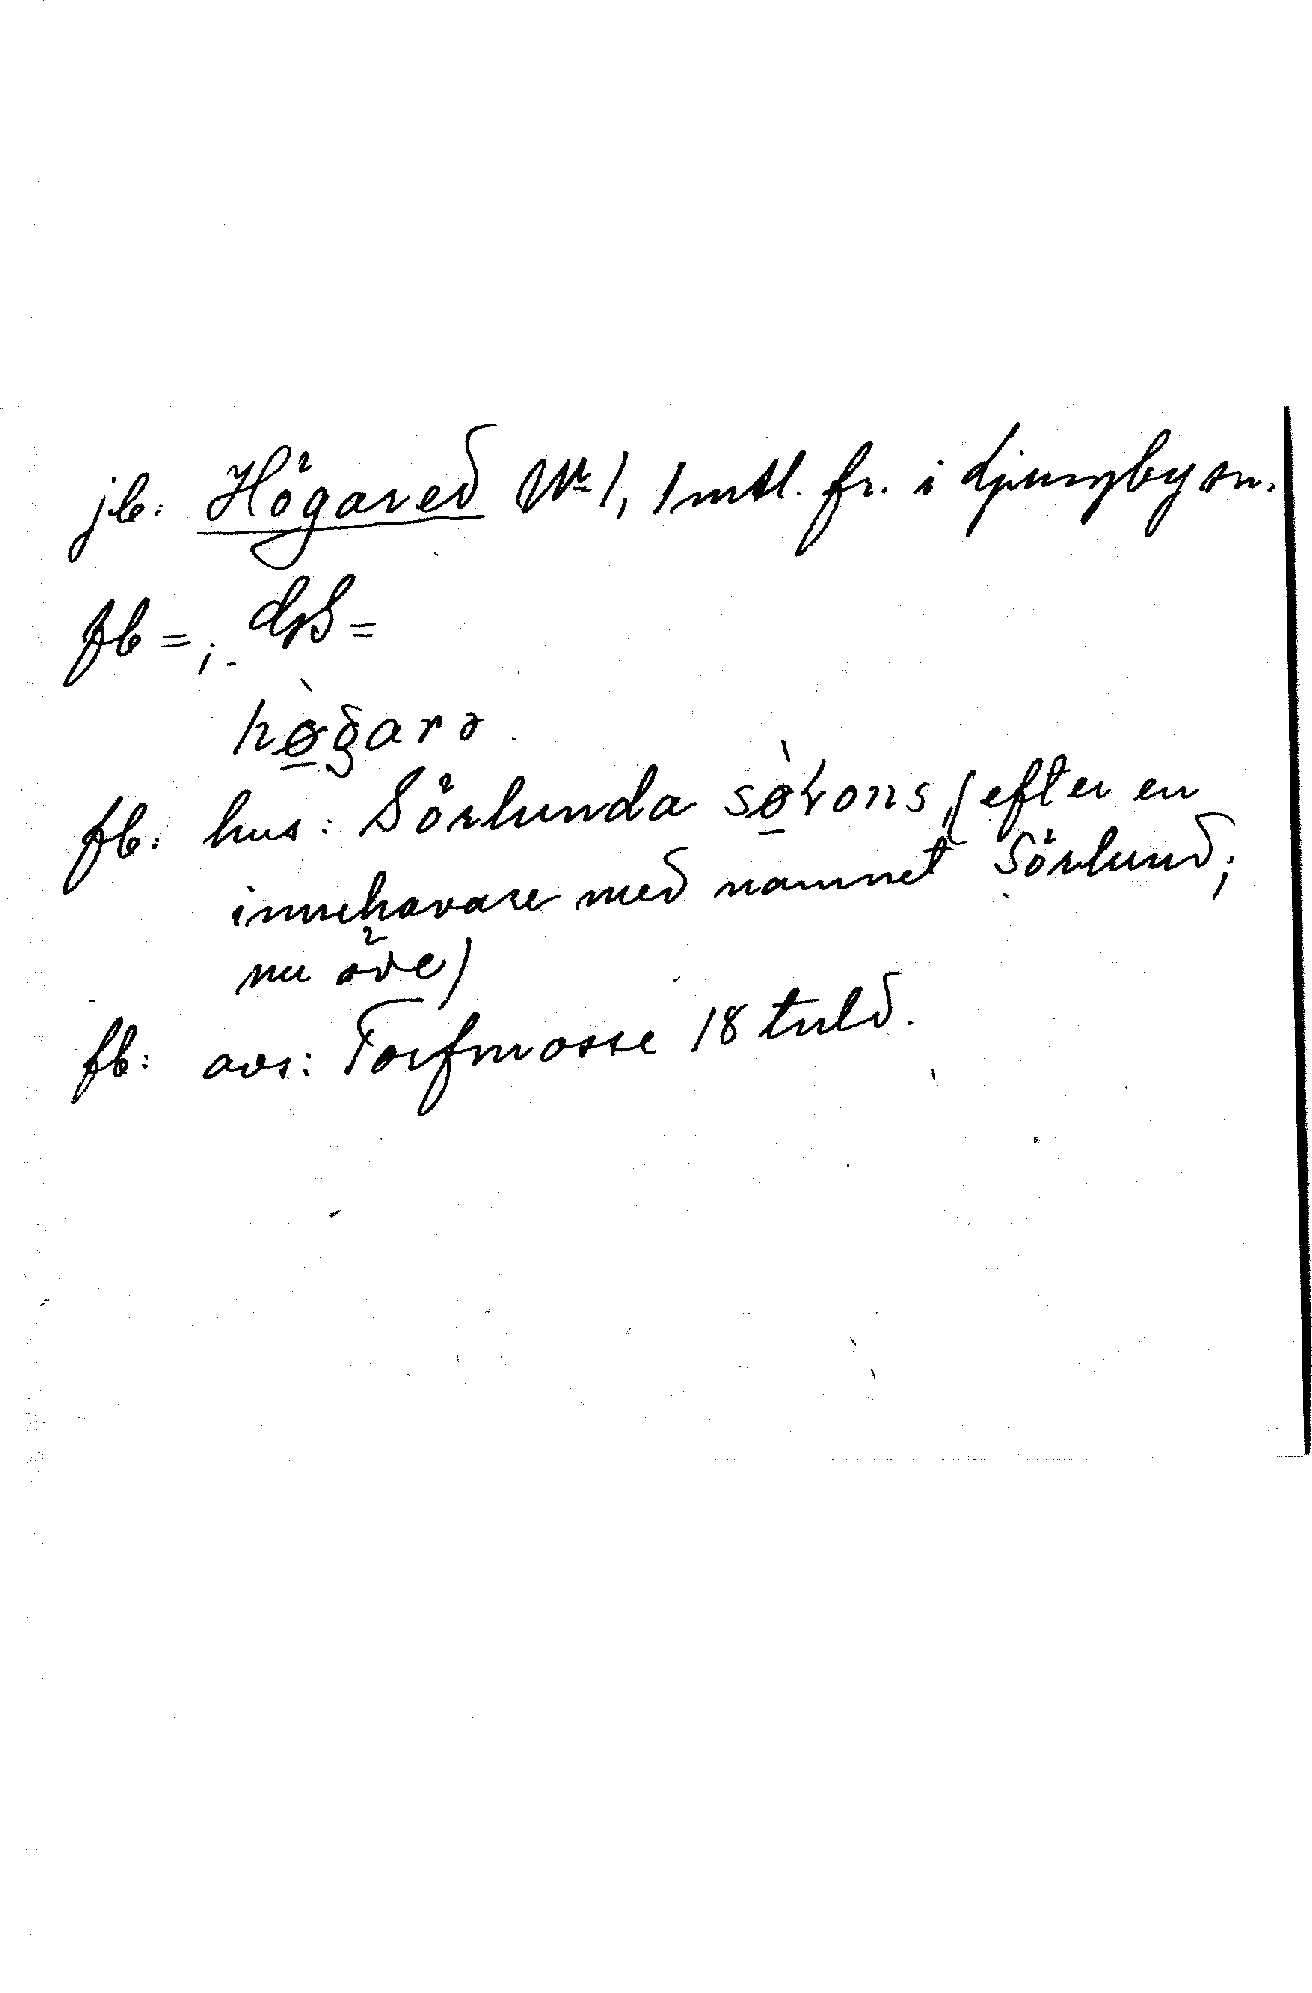 jb: Högared No 1, 1 mtl. fr. i Ljungby sn.
fb = ; dss =
hø̀garə
fb: hus: Sörlunda (efter en
innehavare med namnet Sörlund;
nu öde)
fb: avs: Torfmosse 18 tnld.